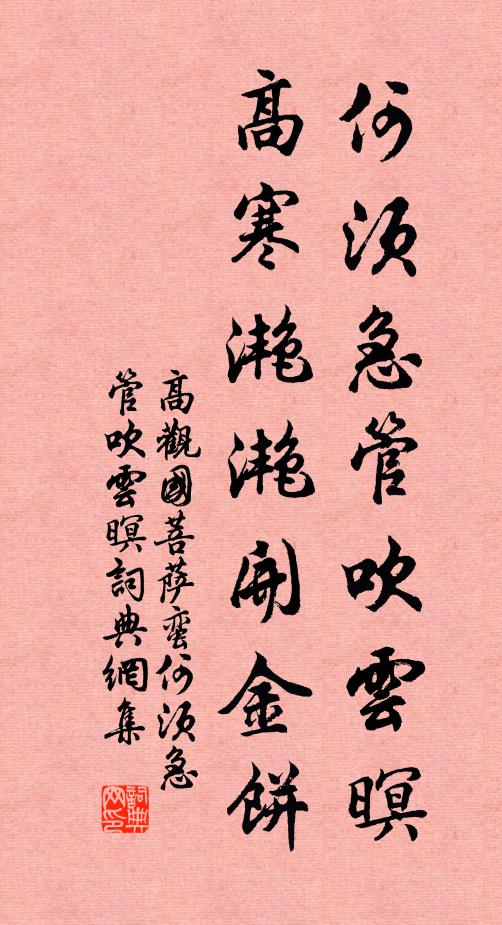 何須急管吹雲暝
高寒灔灔開金餅
高觀國菩薩蠻何須急
管吹雲暝詞典網集
詞典网印